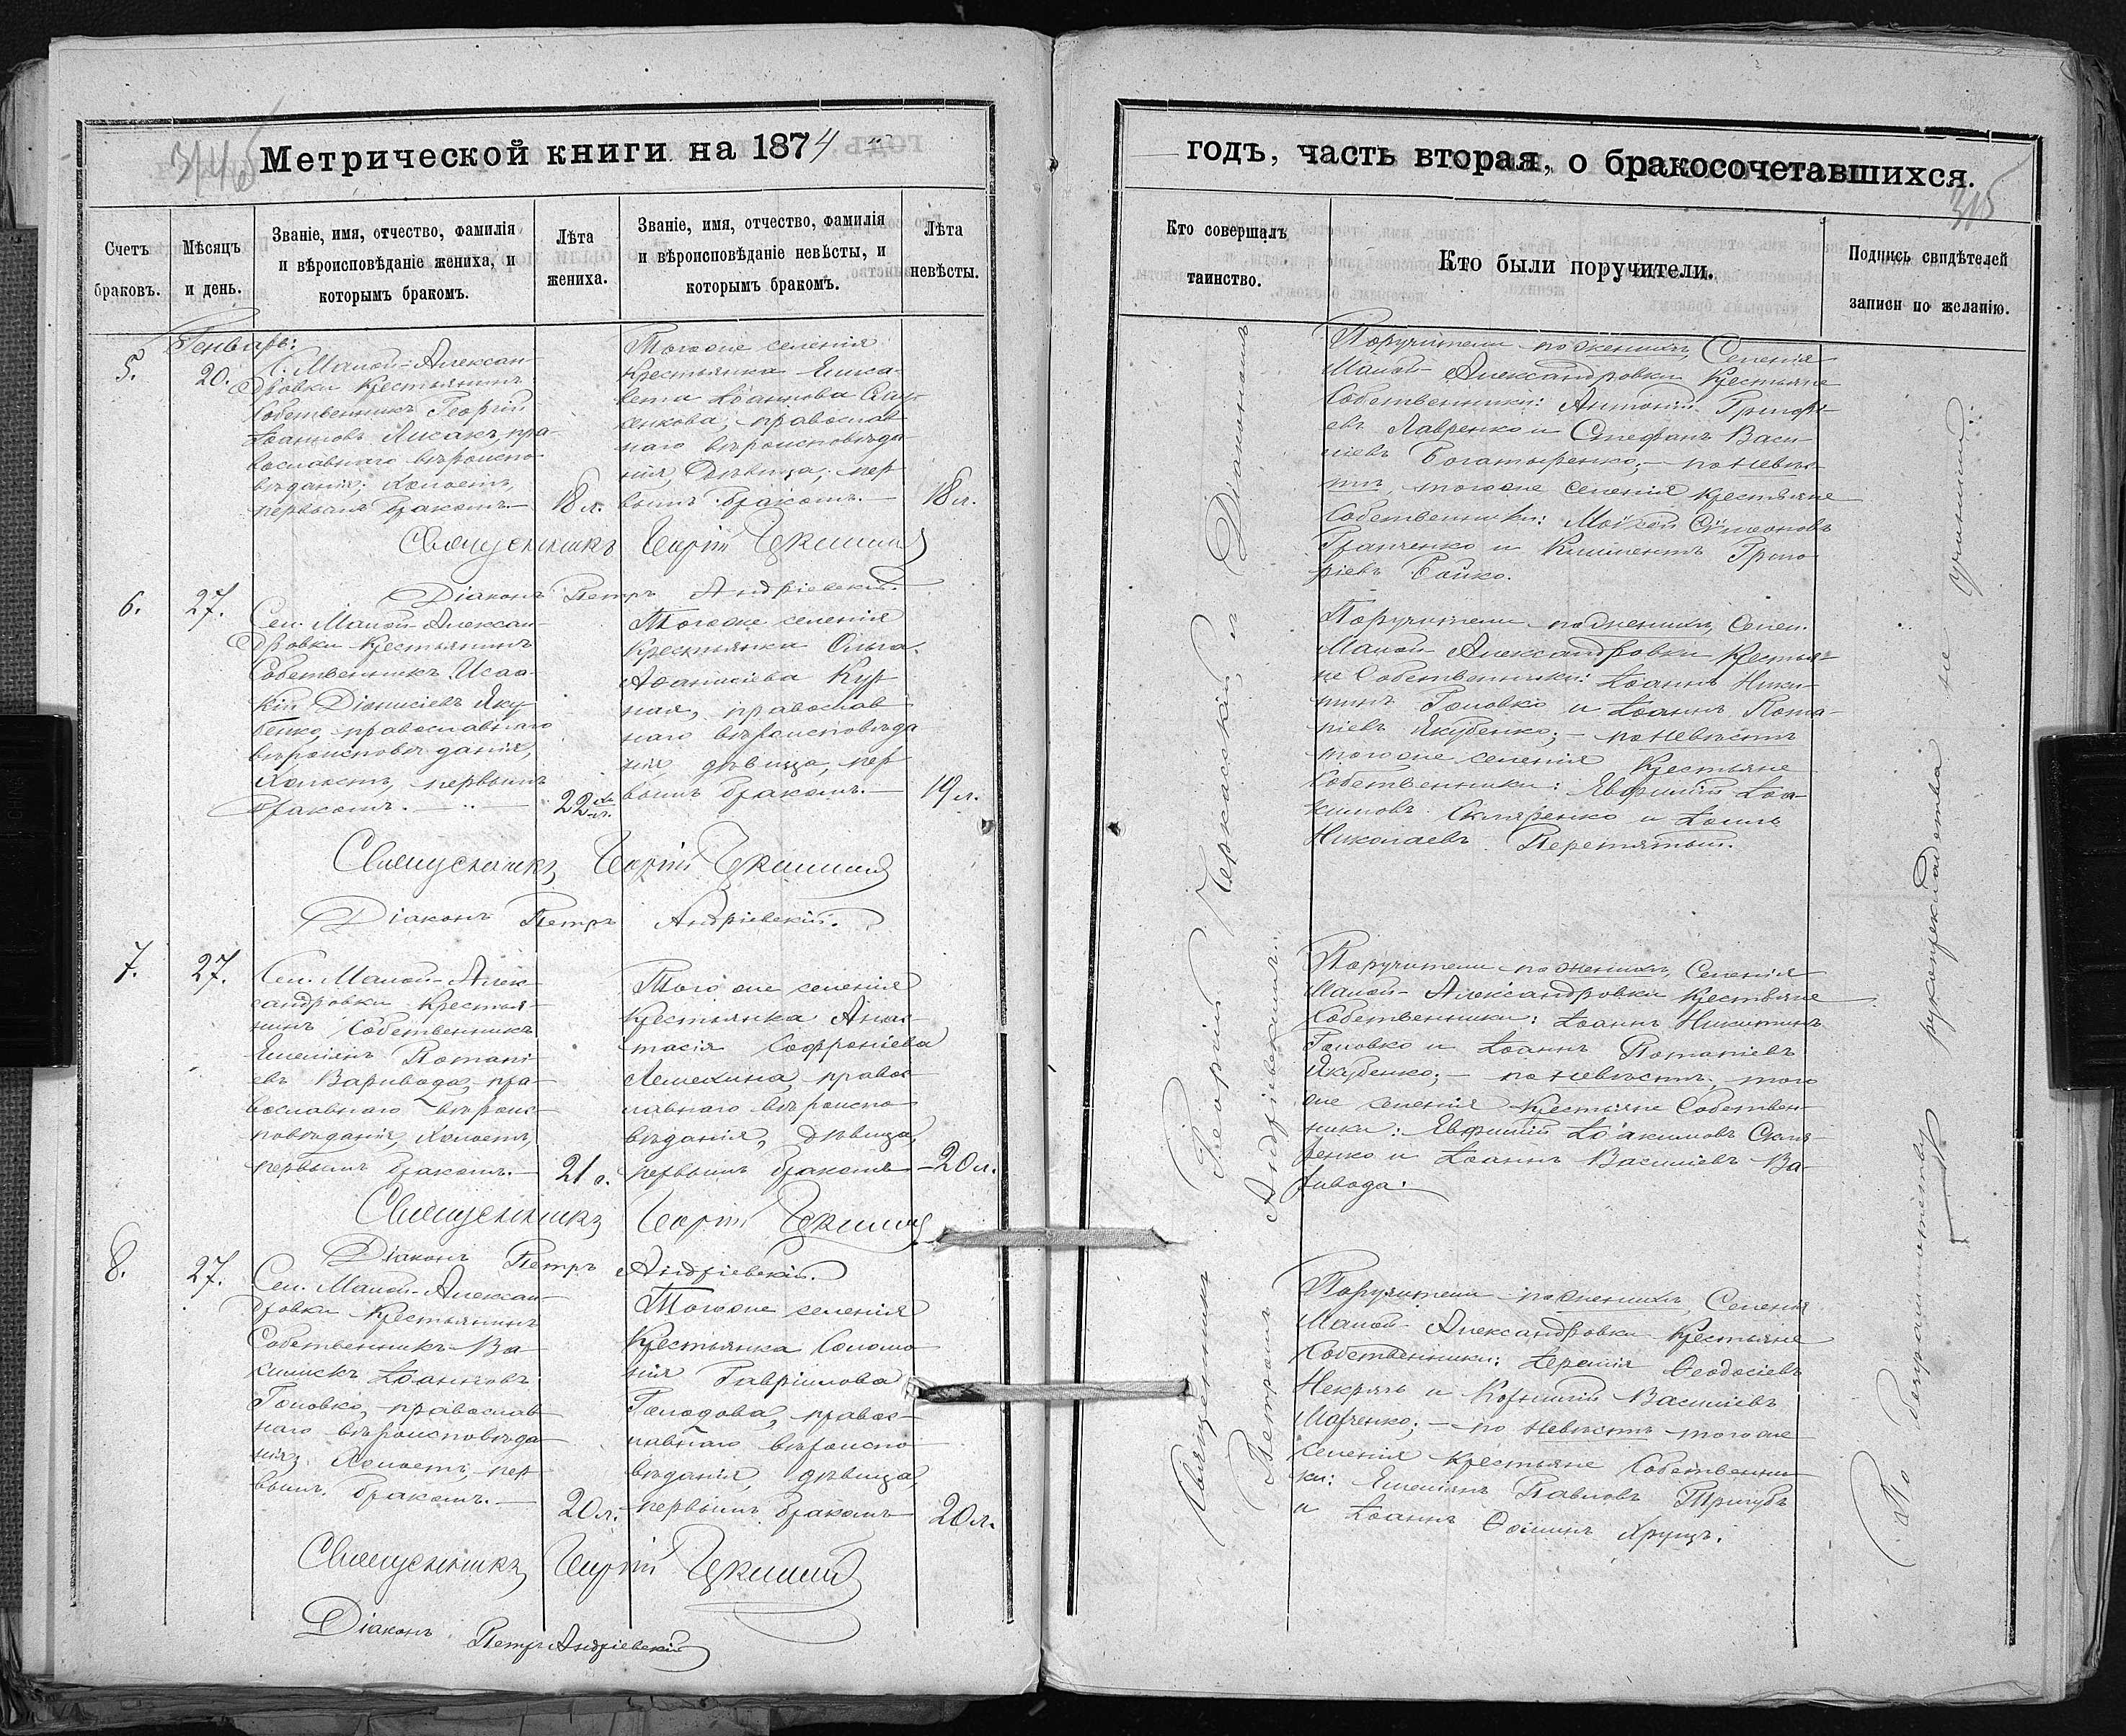 Метрической книги на 1874
Счетъ браковъ.
Мѣсяцъ и день.
Званіе, имя, отчество, фамилія
и вѣроисповѣданіе жениха, и
которымъ бракомъ.
Лѣта
жениха.
Званіе, имя, отчество, фамилія
и вѣроисповѣданіе невѣсты, и
которымъ бракомъ.
Лѣта
невѣсты.
Генварь:
5.
20.
С. Малой-Алексан-
дровки Крестьянинъ
Собственникъ Георгій
Іоанновъ Лисакъ, пра-
вославнаго вѣроиспо-
вѣданія; Холостъ,
первымъ бракомъ.—
18 л.
Тогоже селенія
Крестьянка Елиса-
вета Іоаннова
православ-
наго вѣроисповѣда-
нія, Дѣвица, пер-
вымъ бракомъ.—
18 л.
Священникъ Георгій
Діаконъ Петръ Андріевскій.
6.
27.
Сел. Малой Алексан-
дровки Крестьянинъ
Собственникъ Исаа-
кій Діонисіевъ Яку-
бенко, православнаго
вѣроисповѣданія,
Холостъ, первымъ
бракомъ.—
22 л.
Тогоже селенія
Крестьянка Ольга
Аѳанасіева Кур-
ная, православ-
наго вѣроисповѣда-
нія дѣвица, пер-
вымъ бракомъ.—
19 л.
Священникъ Георгій
Діаконъ Петръ Андріевскій.
7.
27.
Сел. Малой-Алек-
сандровки Крестья-
нинъ Собственникъ
Емеліянъ Потапі-
евъ Варивода, пра-
вославнаго вѣроис-
повѣданія, Холостъ,
первымъ бракомъ.—
21 г.
Того же селенія
Крестьянка Анас-
тасія Софроніева
правос-
лавнаго вѣроиспо-
вѣданія, дѣвица,
первымъ бракомъ
20 л.
Священникъ Георгій
Діаконъ Петръ Андріевскій.
8.
27.
Сел. Малой-Алексан-
дровки Крестьянинъ
Собственникъ
Іоанновъ
Головко, православ-
наго вѣроисповѣда-
нія; Холостъ, пер-
вымъ бракомъ.—
20 л.
Тогоже селенія
Крестьянка Соломо-
нія Гавріилова
Голодова, правос-
лавнаго вѣроиспо-
вѣданія, дѣвица,
первымъ бракомъ
20 л.
Священникъ Георгій
Діаконъ Петръ Андріевскій
годъ, часть вторая, о бракосочетавшихся.
315
Кто совершалъ
таинство.
Кто были поручители.
Подпись свидѣтелей
записи по желанію.
Священникъ Георгій Черкасскій съ Діакономъ
Петромъ Андріевскимъ.
Поручители по женихѣ, Селенія
Малой-Александровки Крестьяне
Собственники: Антоній Григорі-
евъ Лавренко и Стефанъ Васи-
ліевъ Богатыренко;— по невѣс-
тѣ, тогоже селенія Крестьяне
Собственники: Моѵсей Сѵмеоновъ
Гранченко и Климентъ Григо-
ріевъ Бойко.
Поручители по женихѣ, Селен.
Малой Александровки Крестья-
не Собственники: Іоаннъ Ники-
тинъ Головко и Іоаннъ Пота-
піевъ Якубенко;— по невѣстѣ
тогоже селенія Крестьяне
Собственники: Евфимій Іоа-
кимовъ Скляренко и
Николаевъ Перетятый.
Поручители по женихѣ, Селенія
Малой-Александровки Крестьяне
Собственники: Іоаннъ Никитинъ
Головко и Іоаннъ Потапіевъ
Якубенко;— по невѣстѣ, того
же селенія Крестьяне Собствен-
ники: Евфимій Іоакимовъ Скля-
ренко и Іоаннъ Василіевъ Ва-
ривода.
Поручители по женихѣ, Селенія
Малой-Александровки Крестьяне
Собственники: Іеремія Ѳеодосіевъ
Некрячь и Корнилій Василіевъ
Марченко;— по невѣстѣ тогоже
селенія Крестьяне Собственни-
ки: Емеліянъ Павловъ Тригубъ
и Іоаннъ Ѳоминъ Хрущъ.
По безграмотству рукоприкладства не учинили.